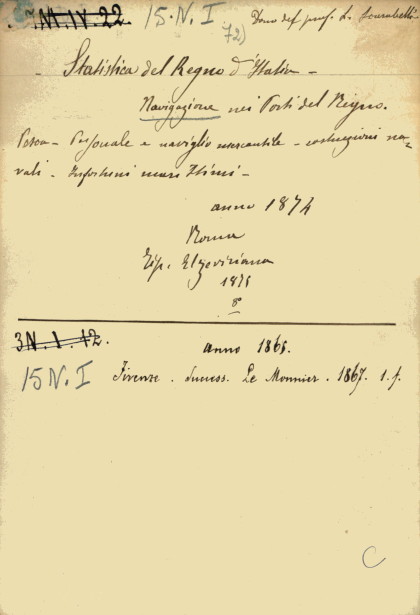 N. IV. 22 15. N. I Dono del prof. L.
72)
Statistica del Regno d'Italia -
Navigazione nei Porti del Regno.
Pesca - Personale e naviglio mercantile - costruzioni na-
vali. Infortuni marittimi -
anno 1874
Roma
Tip. Elzeviriana
1875
8º
3N. I. 12. anno 1865.
15 N. I Firenze. success. Le Monnier. 1867. 1. f.
C